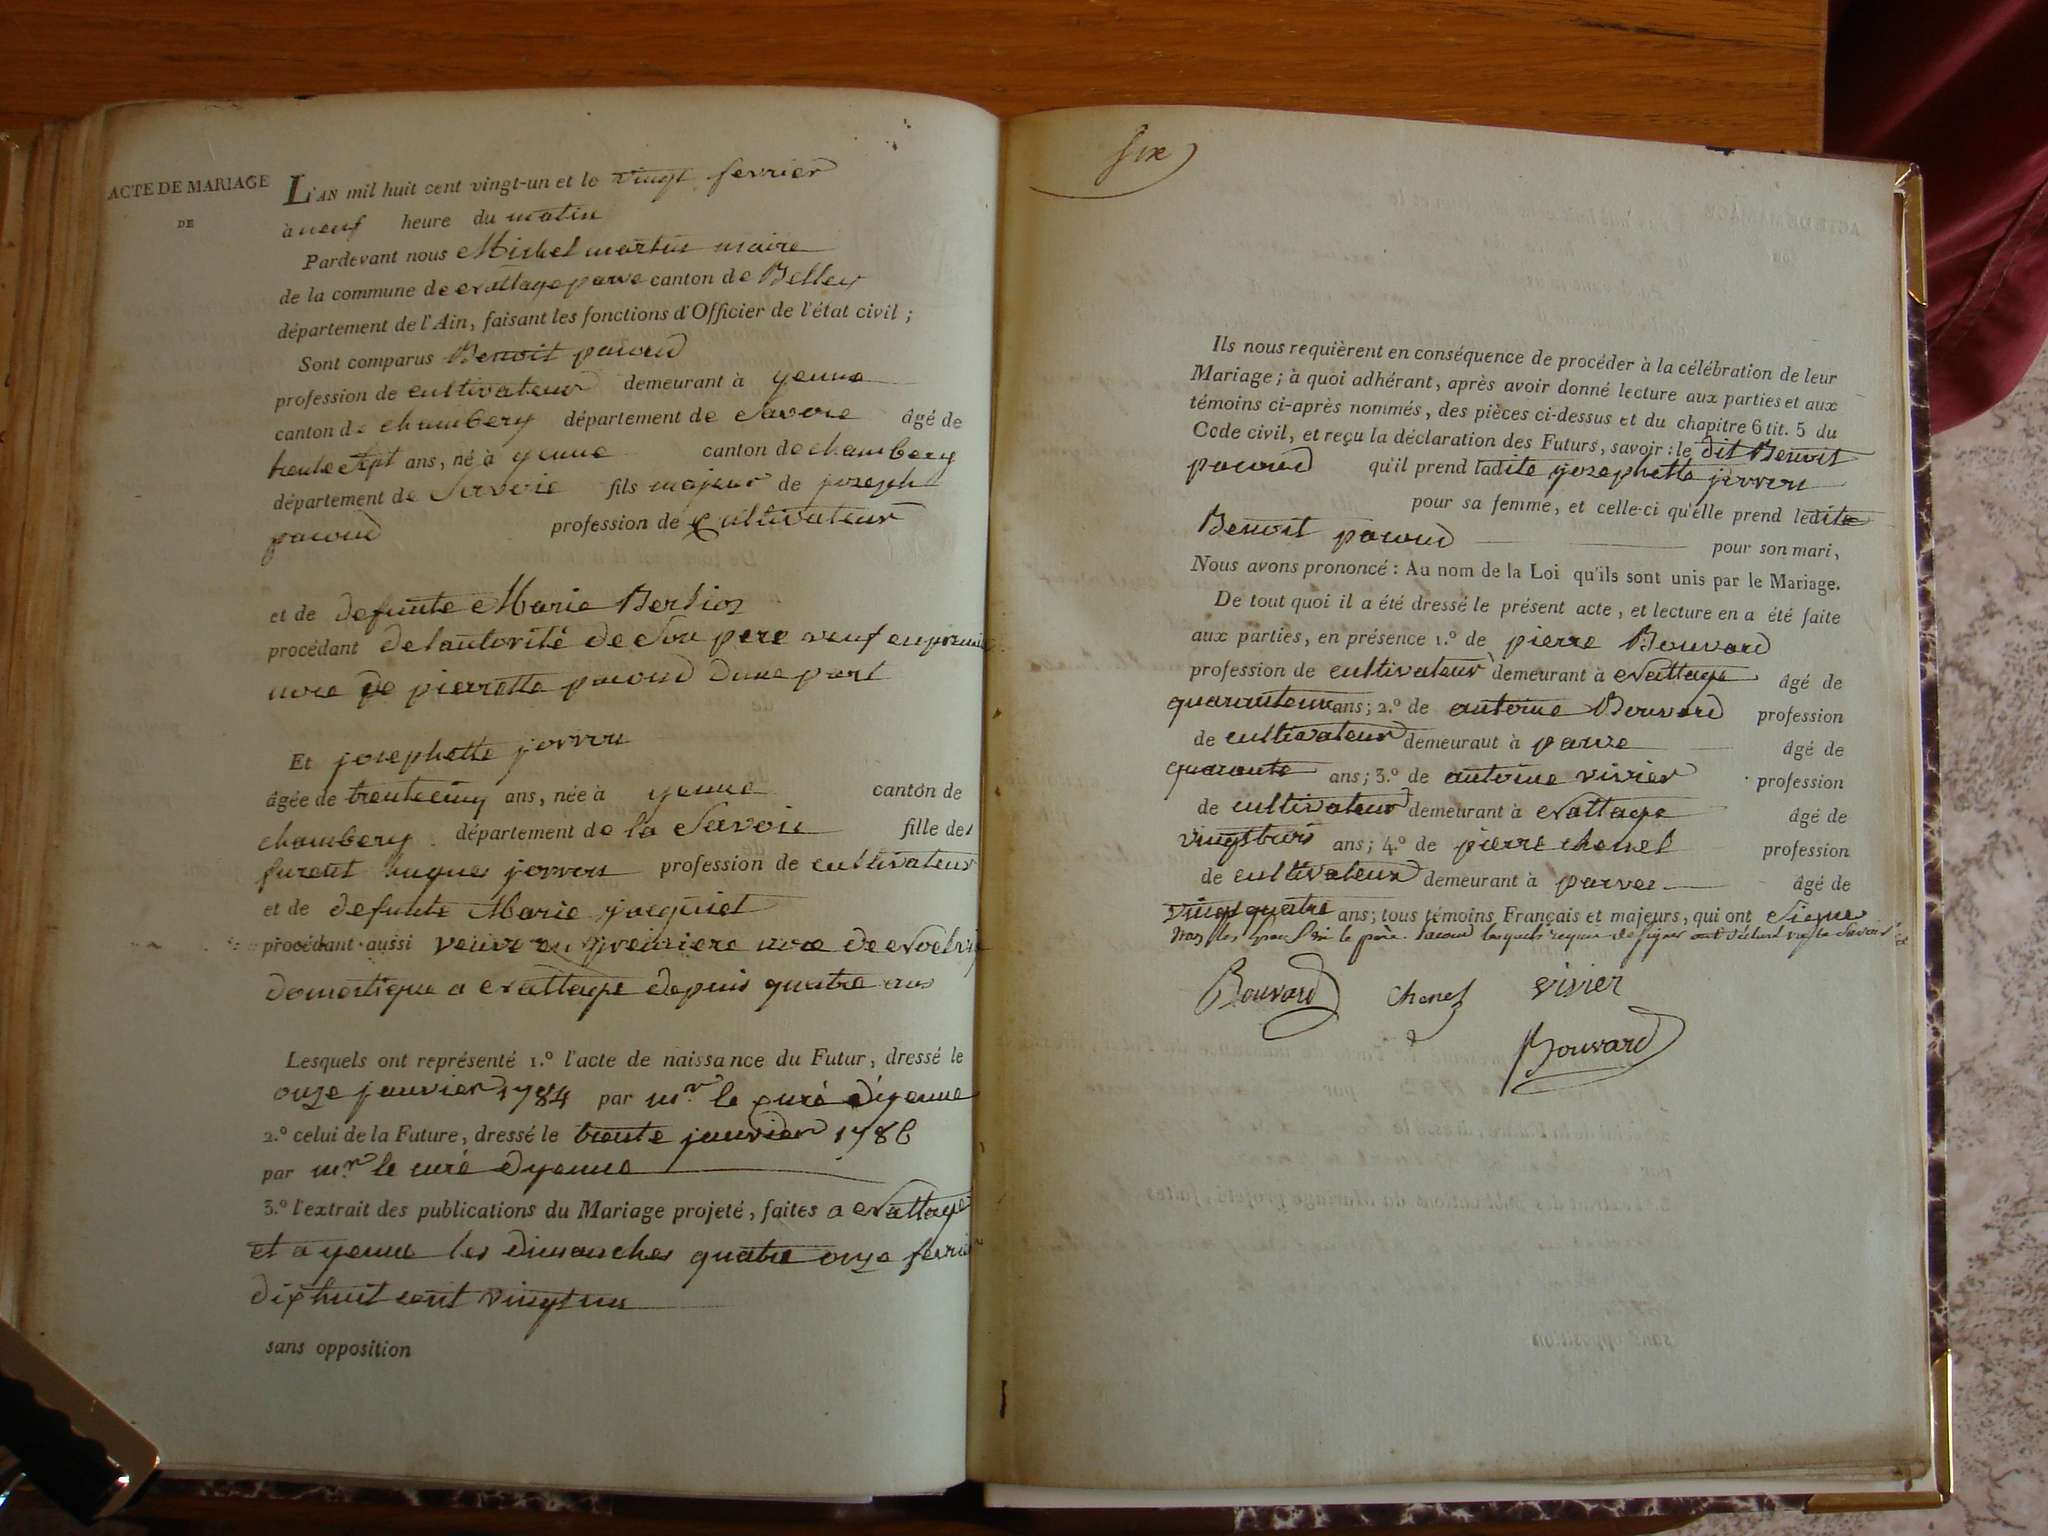 ACTE DE MARIAGE
DE
L'AN mil huit cent vingt-un et le vingt fevrier
à neuf heure du matin
Pardevant nous Michel martin maire
de la commune de cordon canton de Belley
département de l'Ain, faisant les fonctions d'Officier de l'état civil ;
Sont comparus Benoit pacoud
profession de cultivateur demeurant à yenne
canton de chambery département de Savoie âgé de
trente sept ans, né à yenne canton de chambery
département de Savoie fils majeur de joseph
pacoud profession de cultivateur
et de defunte Marie Berlioz
procédant de lautorité de Son pere veuf en premie
nore de pierrette pacoud dune part
Et josephette jorrou
âgée de trente cinq ans, née à yenne canton de
chambery département de la Savoie fille de
furent hugues jorrou profession de cultivateur
et de defunte Marie jacquiet
procédant aussi veuve en premiere nore de
domestique a depuis quatre ans
Lesquels ont représenté 1.º l'acte de naissance du Futur, dressé le
onze janvier 1784 par mr. le curé dyenne
2.º celui de la Future, dressé le trente janvier 1786
par mr. le curé dyenne
3.º l'extrait des publications du Mariage projeté, faites a
et a yenne les dimanches quatre onze fevrier
dixhuit cent vingt un
sans opposition
six
Ils nous requièrent en conséquence de procéder à la célébration de leur
Mariage ; à quoi adhérant, après avoir donné lecture aux parties et aux
témoins ci-après nommés, des pièces ci-dessus et du chapitre 6 tit. 5 du
Code civil, et reçu la déclaration des Futurs, savoir : le dit Benoit
pacoud qu'il prend ladite josephette jorrou
pour sa femme, et celle-ci qu'elle prend ledit
Benoit pacoud pour son mari,
Nous avons prononcé : Au nom de la Loi qu'ils sont unis par le Mariage.
De tout quoi il a été dressé le présent acte, et lecture en a été faite
aux parties, en présence 1.º de pierre Bouvard
profession de cultivateur demeurant à âgé de
ans ; 2.º de antoine Bouvard profession
de cultivateur demeuraut à parve âgé de
quarante ans ; 3.º de antoine vivier profession
de cultivateur demeurant à âgé de
vingt trois ans ; 4.º de pierre chenet profession
de cultivateur demeurant à parve âgé de
vingt quatre ans ; tous témoins Français et majeurs, qui ont signé
non les epoux ni le père pacoud lesquels requis de signer ont déclaré ne le savoir
Bouvard Chenet vivier
Bouvard